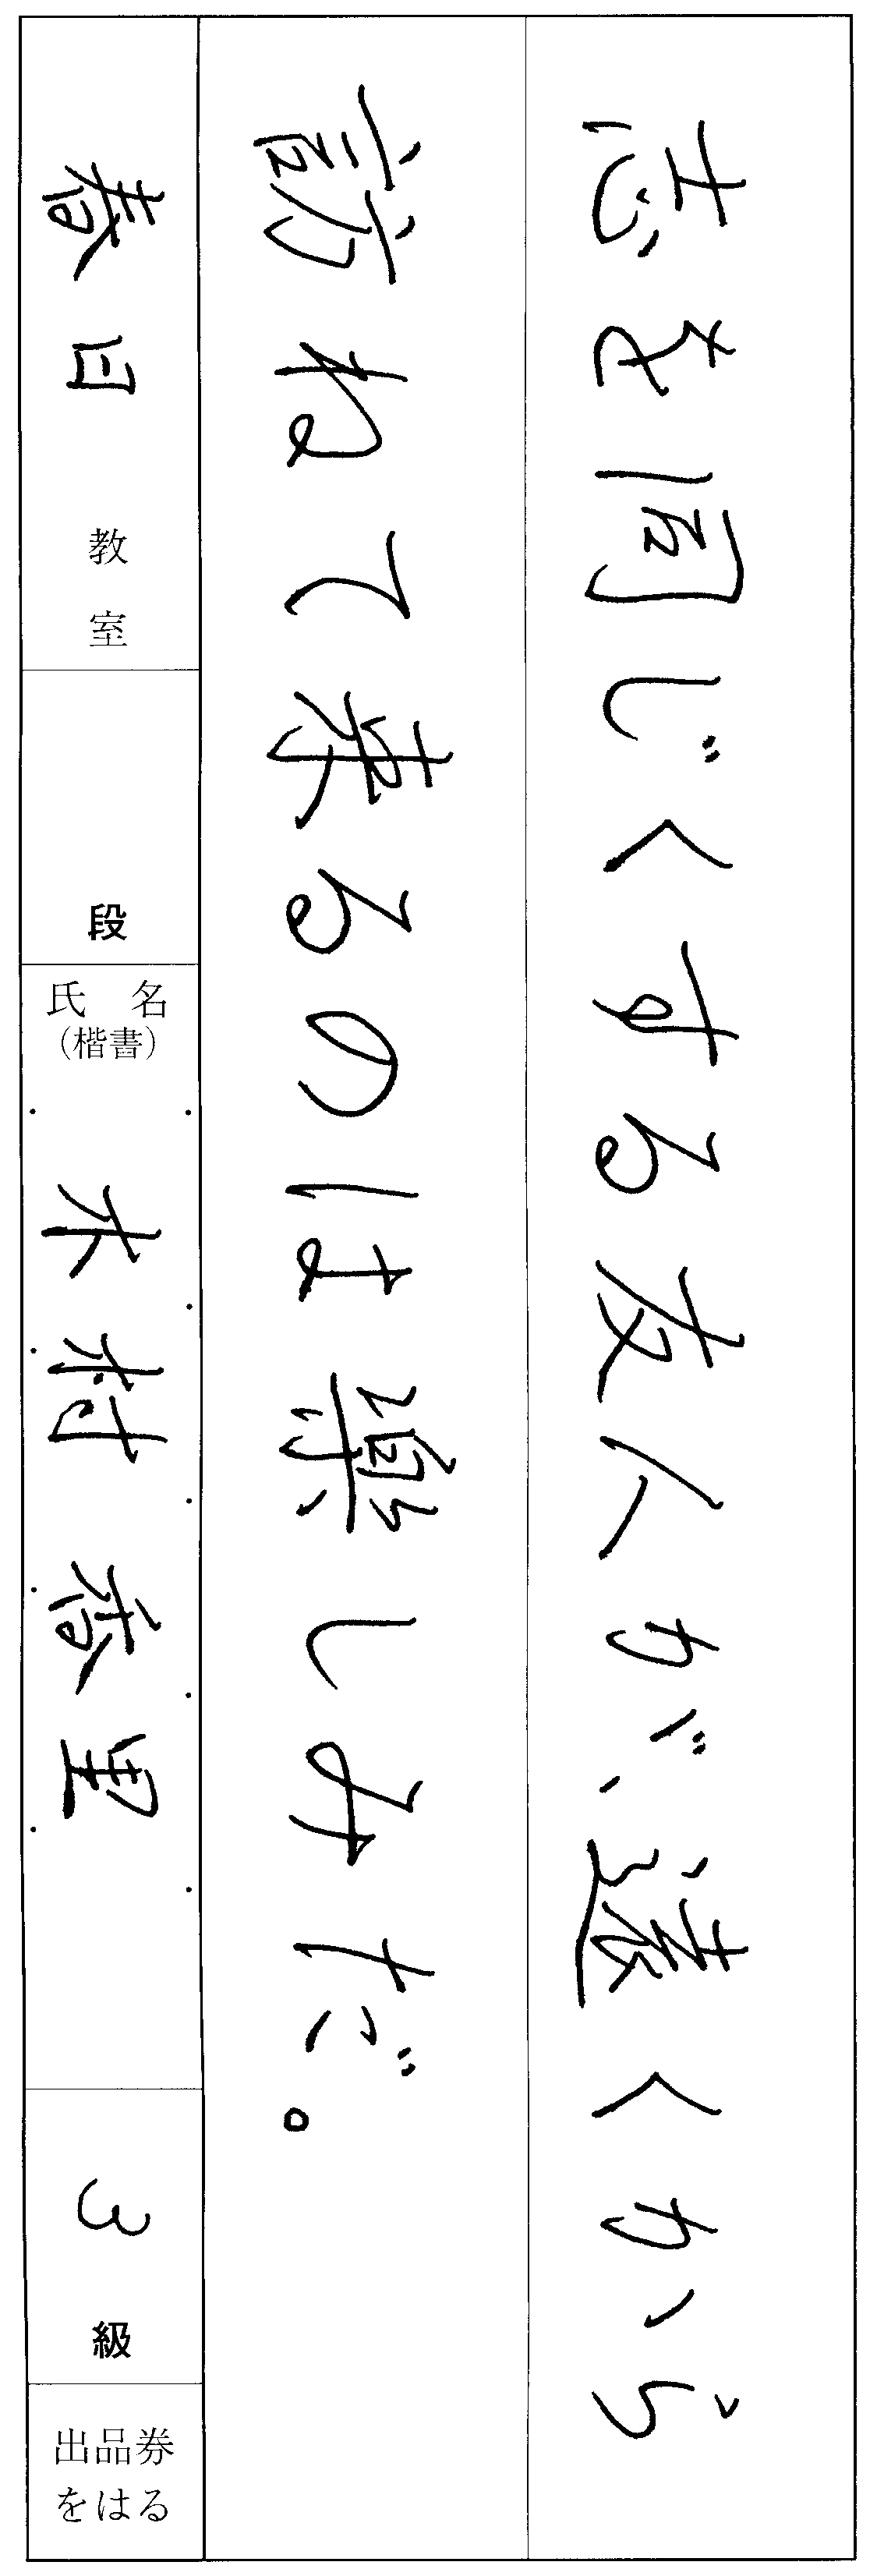 志を同じくする友人が、遠くから
訪ねて来るのは楽しみだ。
春日 教室
段
氏名
(楷書)
木村香里
3 級
出品券
をはる